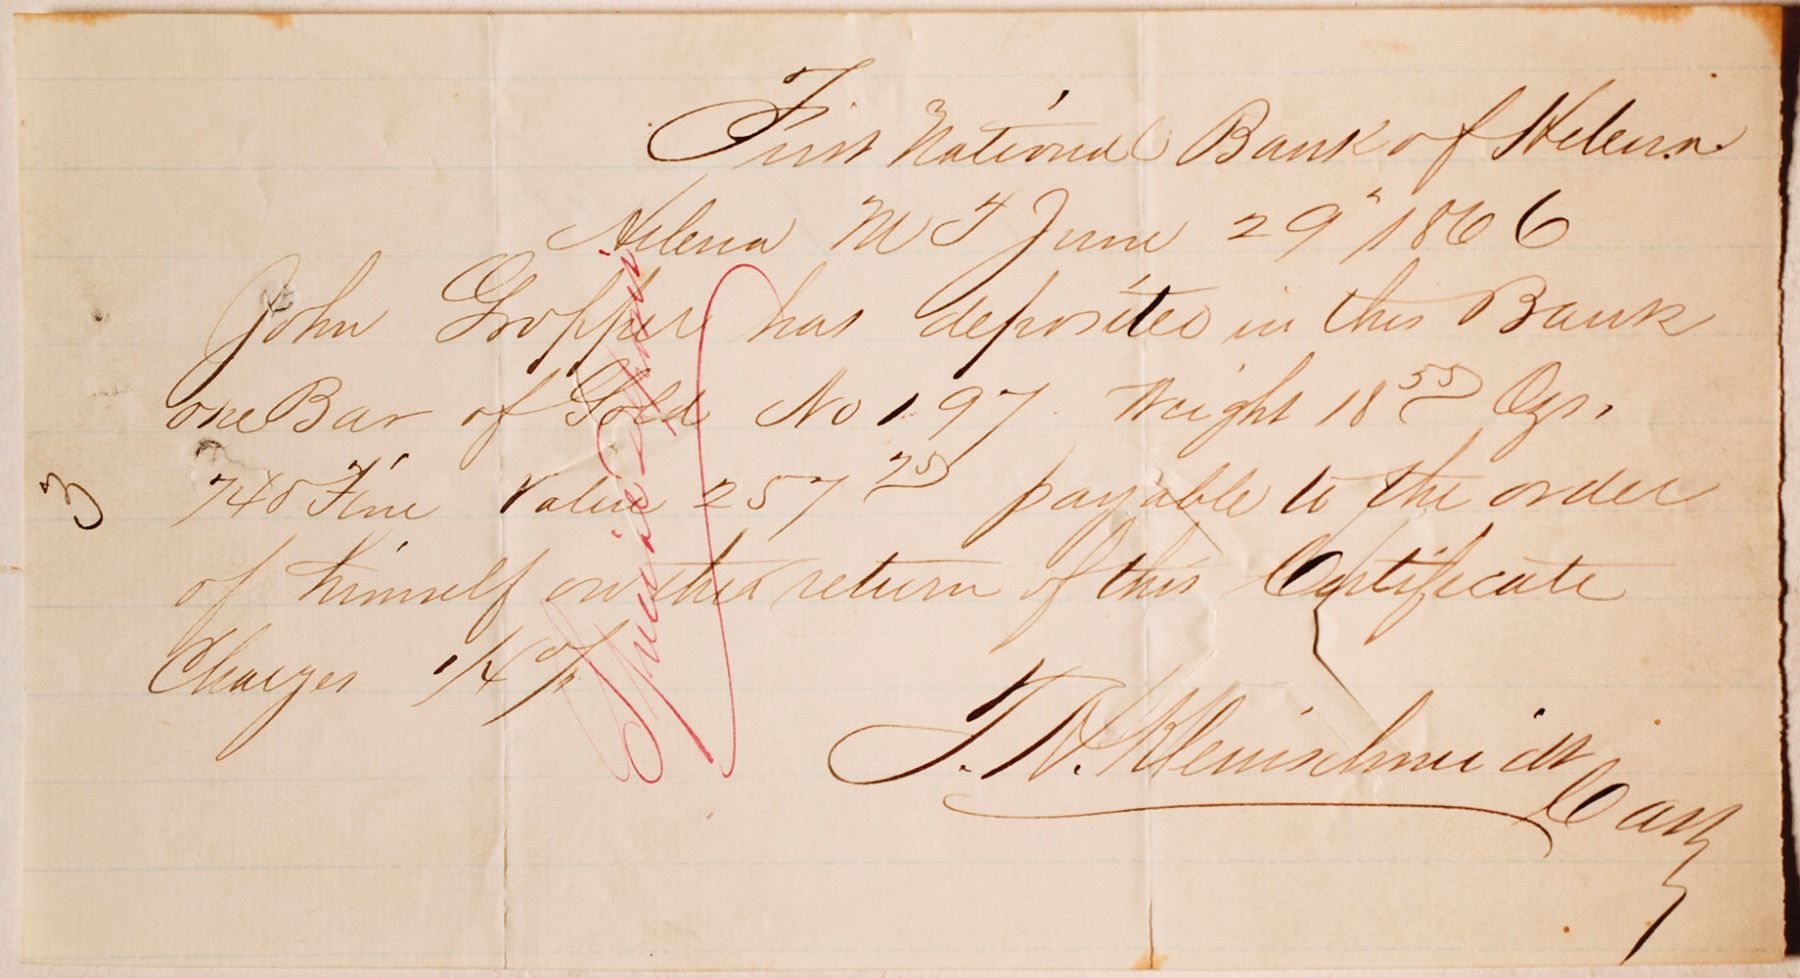 First National Bank of Helena.
Helena M T June 29" 1866
John Gropper has deposited in this Bank
one Bar of Gold No 197 Weight 18 55 Ozs.
740 Fine Value 257 75 payable to the order
3
of himself on the return of this Certificate
Charges 1/4 %
T. H. Kleinschmidt
Cash